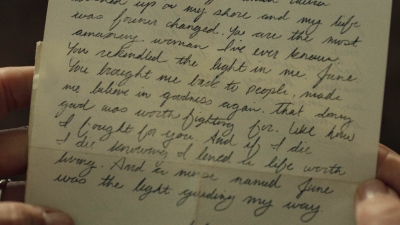 washed up on my shore and my life
was forever changed. You are the most
amazing woman I've ever known.
You rekindled the light in me June
You brought me back to people, made
me believe in goodness again. That doing
good was worth fighting for. Like how
I fought for you. And if I die
I die knowing I lived a life worth
living. And a nurse named June
was the light guiding my way